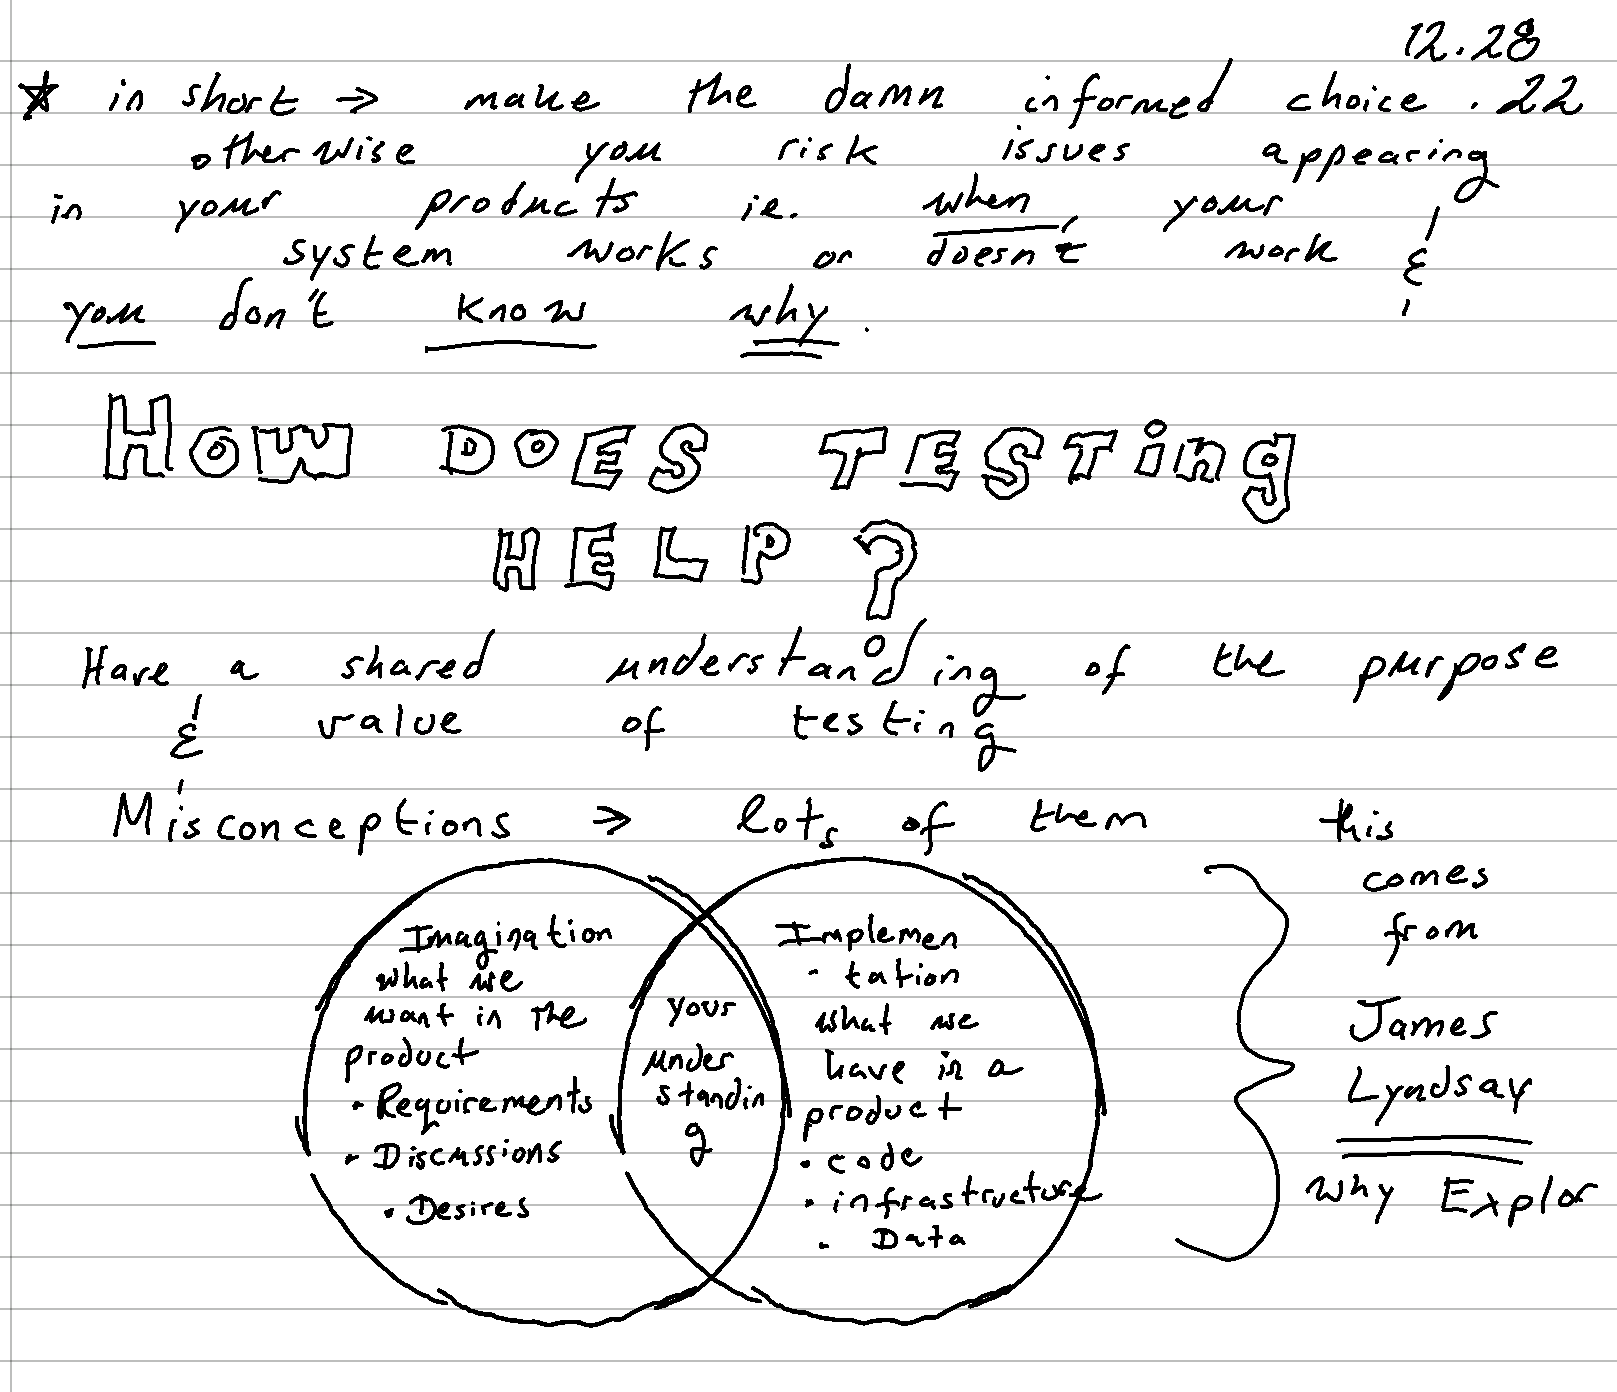 12.28
☆ in short → make the damn informed choice . 22
otherwise you risk issues appearing
in your products ie. when your
system works or doesn't work &
you don't know why.
HOW DOES TESTing
HELP?
Have a shared understanding of the purpose
& value of testing
Misconceptions → lots of them
this
comes
from
James
Lyndsay
why Explor
Imagination
what we
want in the
product
· Requirements
· Discussions
· Desires
your
under
standin
g
Implemen
- tation
what we
have in a
product
· code
· infrastructure
· Data